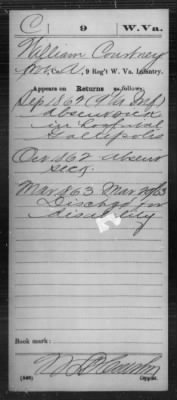 C 9 W. Va.
William Courtney
Co. 9 Reg't W. Va. Infantry.
Appears on Returns as follows:
Sep 1862 (9 Va Inf)
absent sick
in hospital
Gallipolis
Oct 1862 Absent
sick.
Mar 1863 Mar 1863
Dischgd for
disability
Book mark:
Copyist.